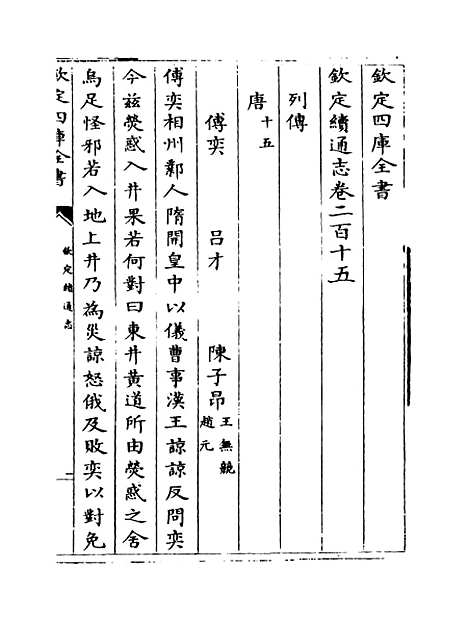 欽定四庫全書
欽定續通志卷二百十五
列傳
唐十五
傅奕 吕才 陳子昂王無競趙元
傅奕相州鄴人隋開皇中以儀曹事漢王諒諒反問奕
今兹熒惑入井果若何對曰東井黄道所由熒惑之舍
烏足怪邪若入地上井乃為災諒怒俄及敗奕以對免
欽定四庫全書
欽定續通志
一